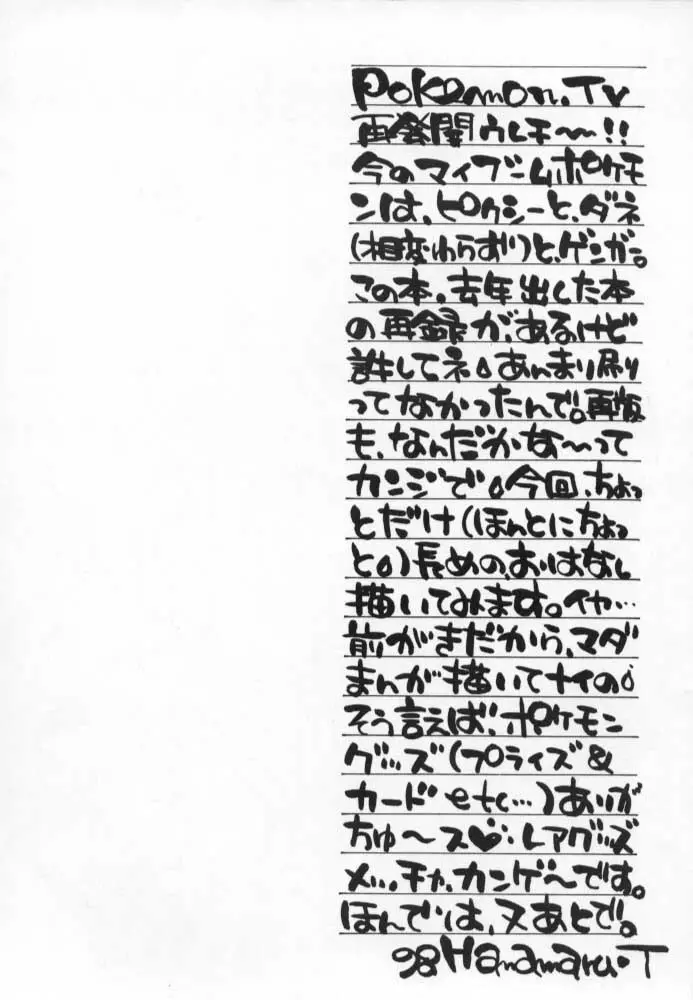 Pokemon.Tv
再発開ウレチ〜〜!!
今のマイブームポケモ
ンは、ピクシーと、ダネ
(相変わらず)と、ゲンガー。
この本、去年出した本
の再録が、あるけど
許してネ。あんまり刷り
ってなかったんで。再版
も、なんだかな〜って
カンジで。今回、ちょっ
とだけ(ほんとにちょっ
と。)長めの、おはなし
描いてみます。イヤ…
前がきだから、マダ
まんが描いてナイの。
そう言えば、ポケモン
グッズ(プライズ&
カード etc…)ありが
ちゅ〜ス♥: レアグッズ
メッチャ、カンゲ〜です。
ほんでは、又あとで。
98 Hanamaru・T